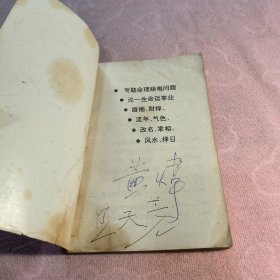 ● 专题命理疑难问题
● 论一生命运事业
● 婚姻、财禄、
● 流年、气色、
● 改名、掌相、
● 风水、择日
黄
天